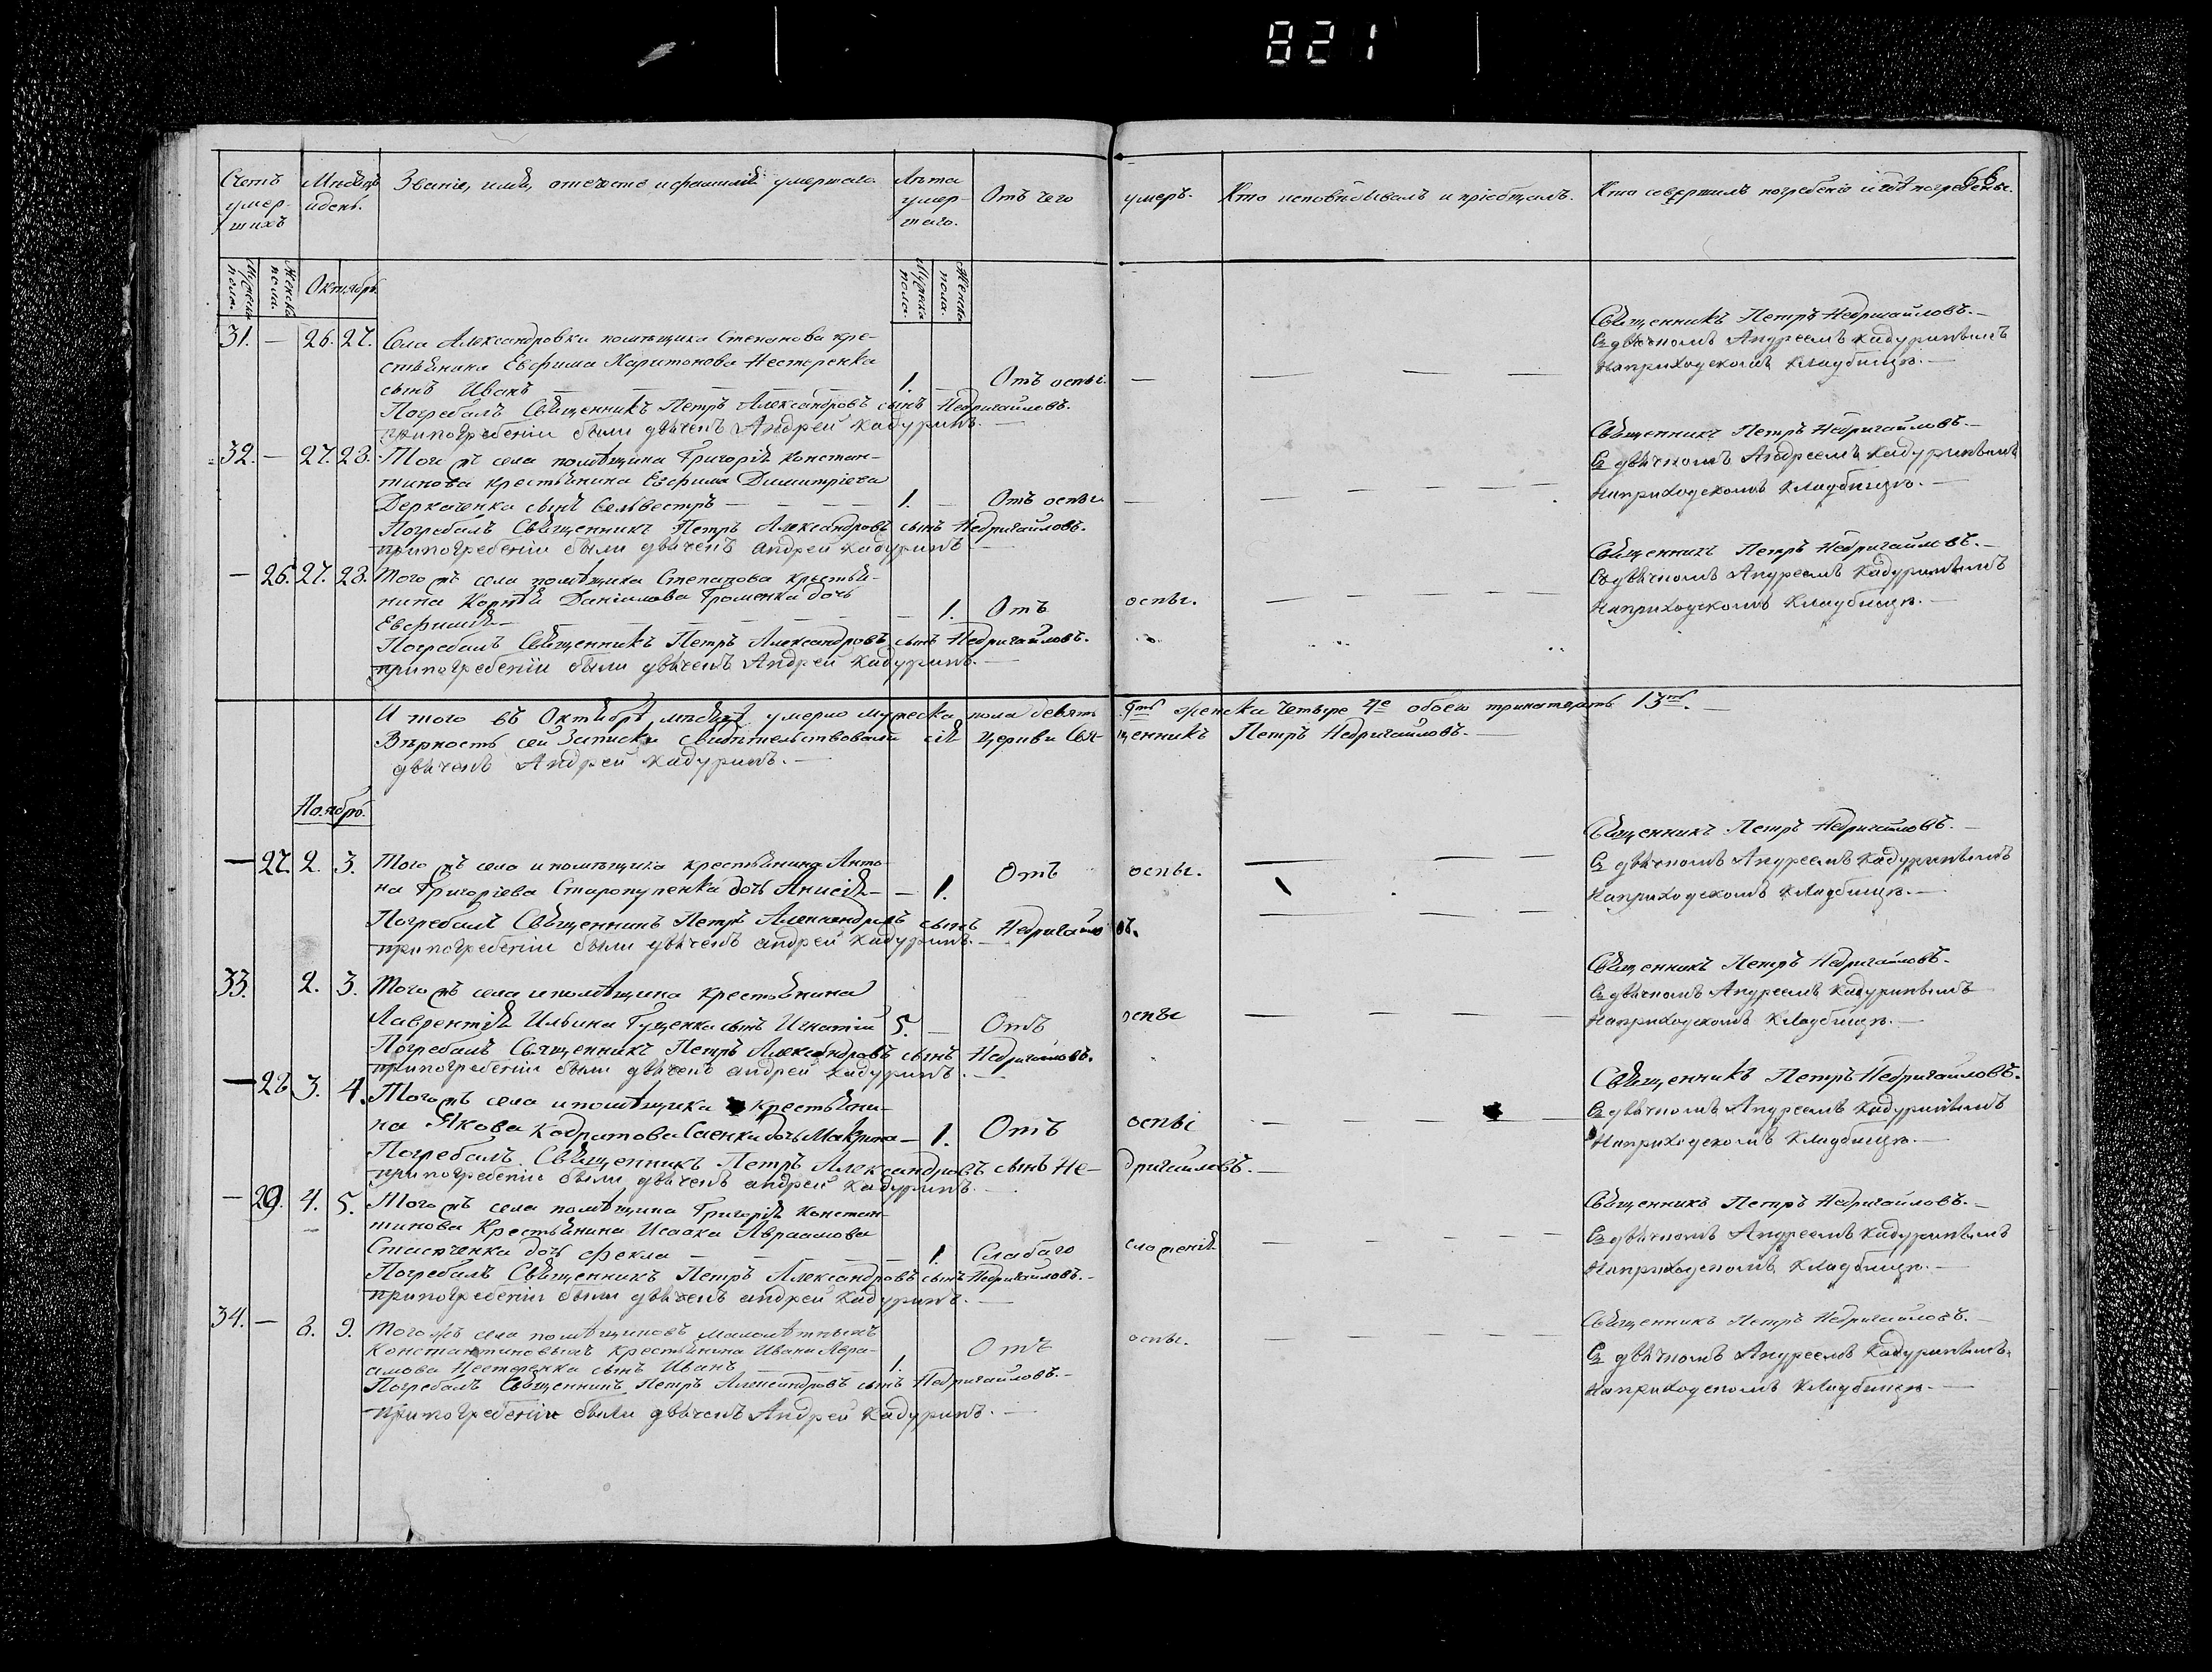 821
66
Счетъ умершихъ
Мѣсяцъ и день.
Званіе, имя, отчество и фамилія умершаго
Лѣта умершаго.
Отъ чего умеръ.
Кто исповѣдывалъ и пріобщалъ.
Кто совершилъ погребеніе и гдѣ погребены.
Мужеска пола.
Женска пола.
Октябрь
Мужеска пола.
Женска пола.
31. — 26. 27. Села Александровки помѣщика Степанова кре-
стьянина Евфима Харитонова Нестеренка
сынъ Иванъ — 1. — Отъ оспы. —
Священникъ Петръ Недригайловъ. —
Съ дьячкомъ Андреемъ Кадуринымъ
На приходскомъ кладбищѣ. —
Погребалъ Священникъ Петръ Александровъ сынъ Недригайловъ.
при погребеніи были дьячекъ Андрей Кадуринъ. —
32. — 27. 28. Того жъ села помѣщика Григорія Констан-
тинова крестьянина Евфима Димитріева
Деркаченка сынъ Сельвестръ — 1. — Отъ оспы. —
Священникъ Петръ Недригайловъ. —
Съ дьячкомъ Андреемъ Кадуринымъ
На приходскомъ кладбищѣ. —
Погребалъ Священникъ Петръ Александровъ сынъ Недригайловъ.
при погребеніи были дьячекъ Андрей Кадуринъ —
— 26. 27. 28. Того жъ села помѣщика Степанова крестья-
нина Корнѣя Даніилова Громенка дочь
Евфимія — — 1. Отъ оспы.
Священникъ Петръ Недригайловъ. —
Съ дьячкомъ Андреемъ Кадуринымъ
На приходскомъ кладбищѣ. —
Погребалъ Священникъ Петръ Александровъ сынъ Недригайловъ.
при погребеніи были дьячекъ Андрей Кадуринъ. —
И того въ Октябрѣ мѣсяцѣ умерло мужеска пола девять 9ть женска четыре 4е обоего тринатцать 13ть. —
Вѣрность сей Записки свидѣтельствовали сія церкви Священникъ Петръ Недригайловъ. —
дьячекъ Андрей Кадуринъ. —
Ноябрь.
— 27. 2. 3. Того жъ села и помѣщика крестьянина Анто-
на Григоріева дочь Анисія — — 1. Отъ оспы. —
Священникъ Петръ Недригайловъ. —
Съ дьячкомъ Андреемъ Кадуринымъ
На приходскомъ кладбищѣ. —
Погребалъ Священникъ Петръ Александровъ сынъ Недригайловъ.
при погребеніи были дьячекъ Андрей Кадуринъ. —
33. 2. 3. Того жъ села и помѣщика крестьянина
Лаврентія Ильина Гуценка сынъ Игнатій 5. — Отъ оспы —
Священникъ Петръ Недригайловъ.
Съ дьячкомъ Андреемъ Кадуринымъ
На приходскомъ кладбищѣ. —
Погребалъ Священникъ Петръ Александровъ сынъ Недригайловъ.
при погребеніи были дьячекъ Андрей Кадуринъ. —
— 28 3. 4. Того жъ села и помѣщика крестьяни-
на Якова Кодратова Саенка дочь Макрина — 1. Отъ оспы
Священникъ Петръ Недригайловъ.
Съ дьячкомъ Андреемъ Кадуринымъ
На приходскомъ кладбищѣ. —
Погребалъ Священникъ Петръ Александровъ сынъ Недригайловъ. —
при погребеніи были дьячекъ Андрей Кадуринъ. —
— 29. 4. 5. Того жъ села помѣщика Григорія Констан-
тинова Крестьянина Исаака Авраамова
дочь Фекла — — 1. Слабаго сложенія —
Священникъ Петръ Недригайловъ. —
Съ дьячкомъ Андреемъ Кадуринымъ
На приходскомъ кладбищѣ. —
Погребалъ Священникъ Петръ Александровъ сынъ Недригайловъ. —
при погребеніи были дьячекъ Андрей Кадуринъ. —
34. — 8. 9. Того жъ села помѣщиковъ малолѣтныхъ
Константиновыхъ крестьянина Ивана Авра-
амова Нестеренка сынъ Иванъ — 1. Отъ оспы. —
Священникъ Петръ Недригайловъ. —
Съ дьячкомъ Андреемъ Кадуринымъ.
На приходскомъ кладбищѣ. —
Погребалъ Священникъ Петръ Александровъ сынъ Недригайловъ. —
при погребеніи были дьячекъ Андрей Кадуринъ. —